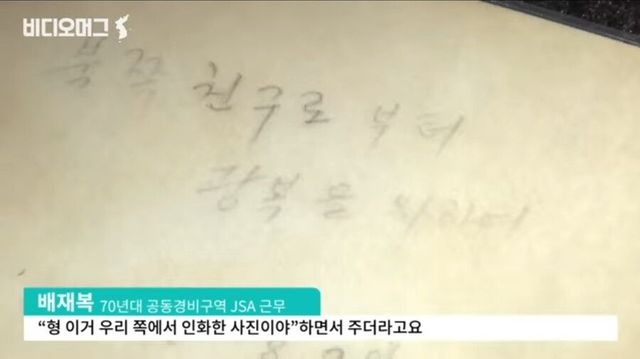 비디오머그
북쪽 친구로부터
광복을
배재복 70년대 공동경비구역 JSA 근무
“형 이거 우리 쪽에서 인화한 사진이야”하면서 주더라고요